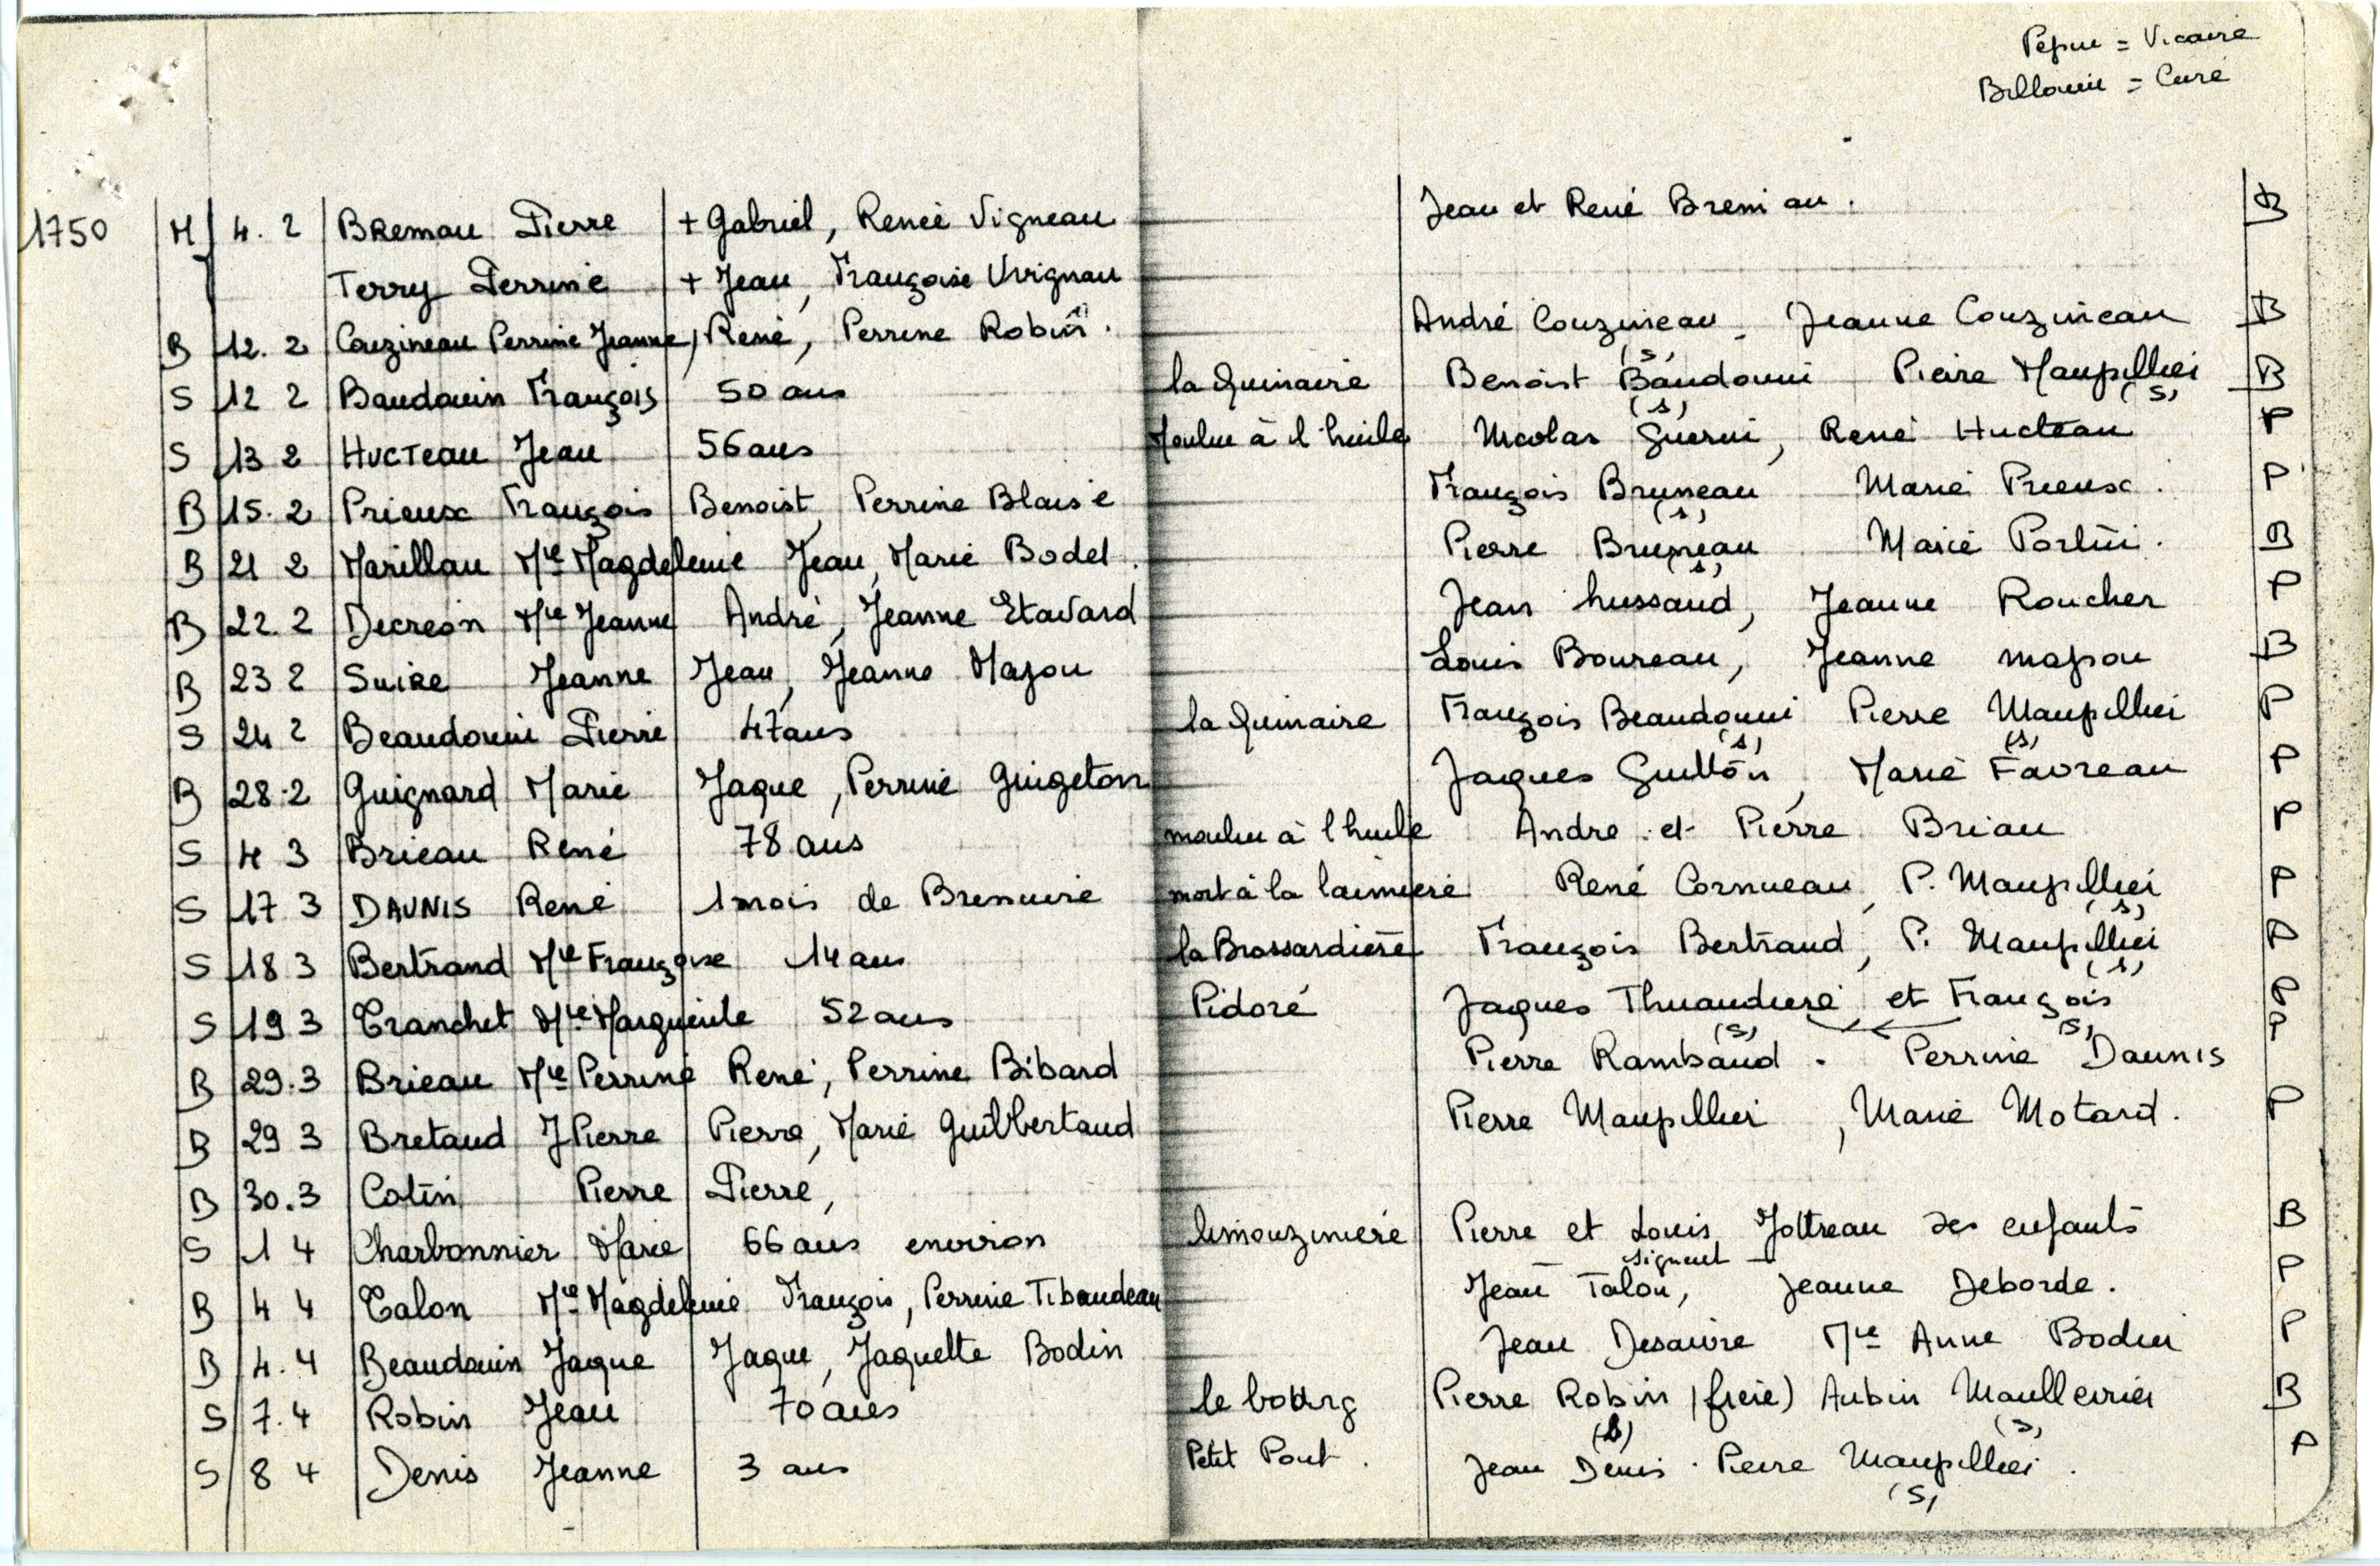 Pépin = Vicaire
Billouin = Curé
1750 M 4. 2 BRemau Pierre + Gabriel, Renée Vigneau Jean et René Bremau. B
Terry Perrine + Jean, Françoise Vrignau
B 12. 2 Couzineau Perrine Jeanne, René, Perrine Robin. André Couzineau - Jeanne Couzineau B
S 12 2 Baudouin François 50 ans la Guinaire Benoist Baudouin (s) Pierre Maupillier (s) B
S 13 2 HucTeau Jean 56 ans Moulin à l'huile Nicolas Guerin (s), René Hucteau P
B 15. 2 Prieux François Benoist, Perrine Blaise François Bruneau (s) Marie Prieux. P
B 21 2 Marillau Mie Magdeleine Jean, Marie Bodet. Pierre Bruneau (s) Marie Portin. B
B 22. 2 Decreon Mie Jeanne André, Jeanne Etavard Jean hussaud, Jeanne Roucher P
B 23 2 Suire Jeanne Jean, Jeanne Majou Louis Boureau, Jeanne majou B
S 24 2 Beaudouin Pierre 47 ans la Guinaire François Beaudouin (s) Pierre Maupillier (s) P
B 28. 2 Guignard Marie Jaque, Perrine Guigeton Jaques Guitton, Marie Favreau P
S 4 3 Brieau René 78 ans moulin à l'huile Andre et Pierre Briau P
S 17 3 DAUNIS René 1 mois de Bressuire mort à la laimiere René Cornueau, P. Maupillier (s) P
S 18 3 Bertrand Mie Françoise 14 ans la Brossardiere François Bertrand, P. Maupillier (s) P
S 19 3 Tranchet Mie Marguerite 52 ans Pidoré Jaques Thuaudiere (s) et François (s) P
B 29. 3 Brieau Mie Perrine René, Perrine Bibard Pierre Rambaud. Perrine Daunis P
B 29 3 Bretaud J Pierre Pierre, Marie Guilbertaud Pierre Maupillier, Marie Motard. P
B 30. 3 Cotin Pierre Pierre,
S 1 4 Charbonnier Marie 66 ans environ limouziniere Pierre et Louis Jottreau ses enfants signent B
B 4 4 Talon Mie Magdeleine François, Perrine Tibaudeau Jean Talon, Jeanne Deborde. P
B 4. 4 Beaudouin Jaque Jaque, Jaquette Bodin Jean Desaivre Mie Anne Bodin P
S 7. 4 Robin Jean 70 ans le bourg Pierre Robin (frere) (s) Aubin Maullevrier (s) B
S 8 4 Denis Jeanne 3 ans Petit Pont. Jean Denis. Pierre Maupillier (s). P